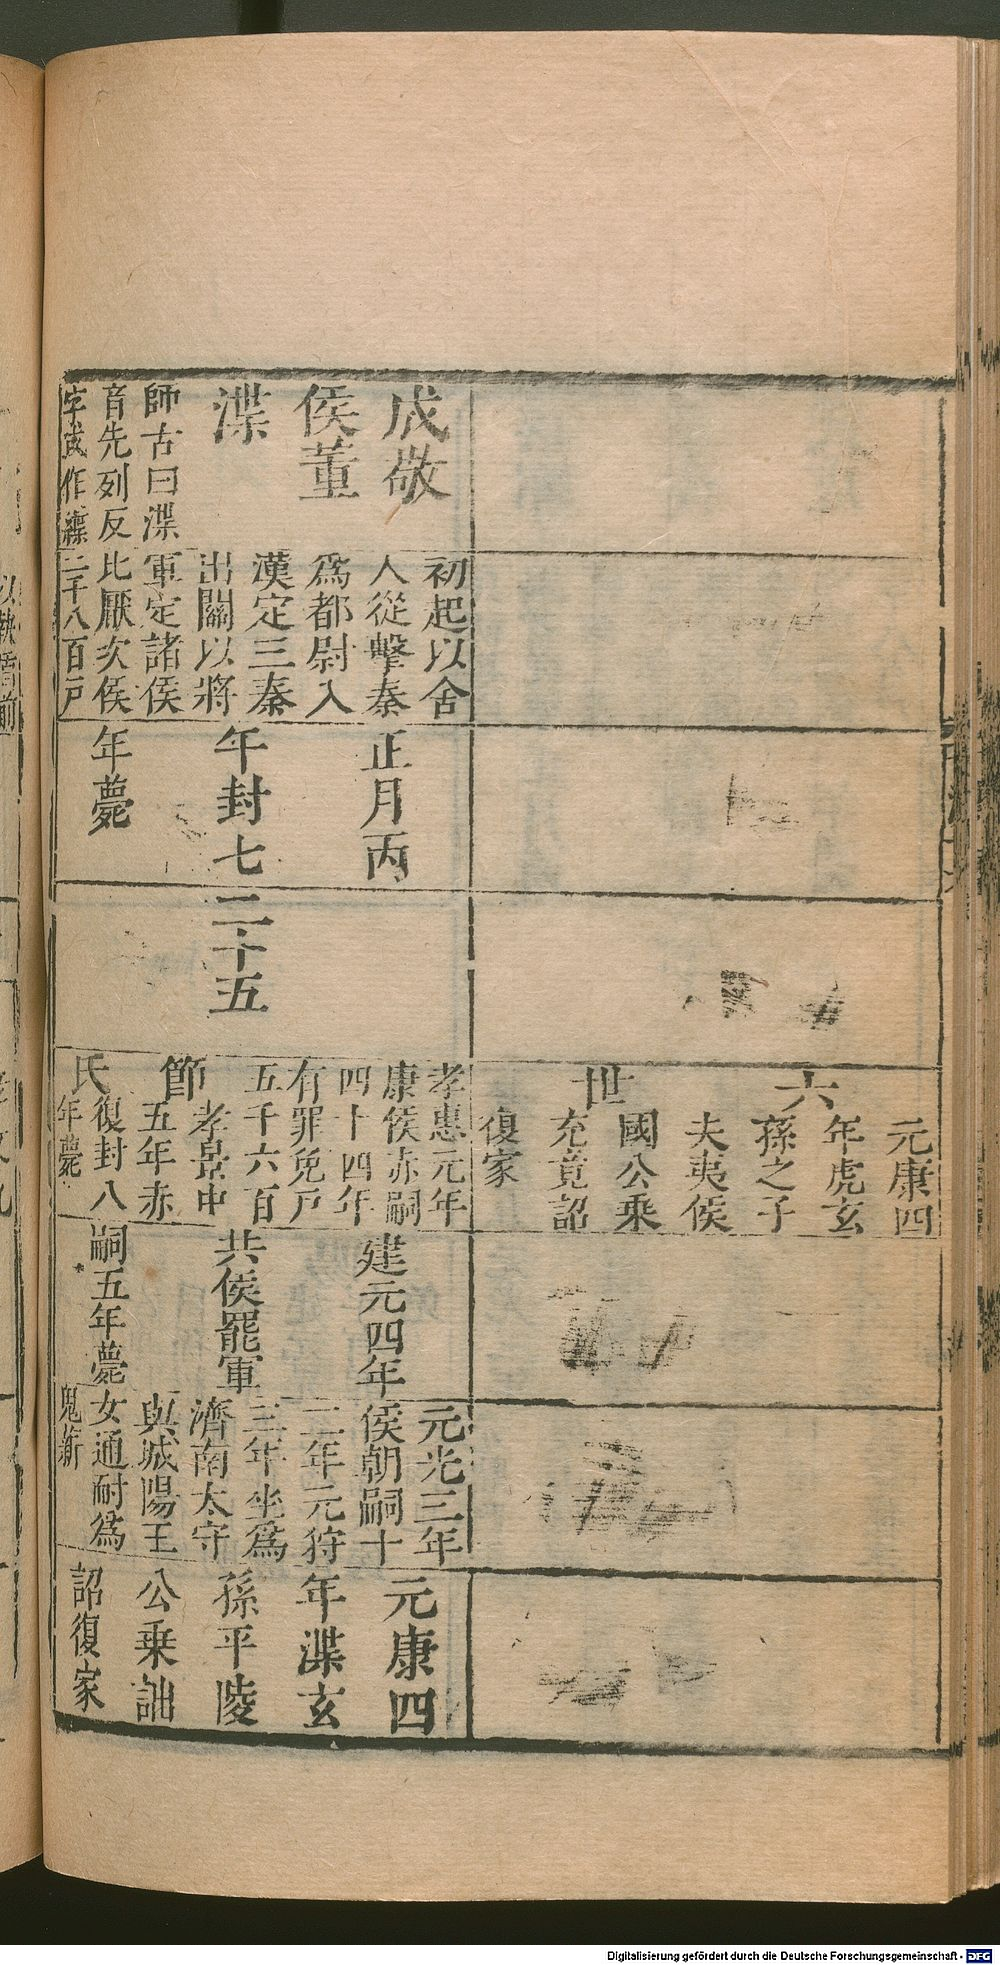 六
世
元康四
年虎玄
孫之子
夫夷侯
國公乘
充竟詔
復家
成敬
侯董
渫
師古曰渫
音先列反
字或作緤
初起以舍
人從擊秦
爲都尉入
漢定三秦
出關以將
軍定諸侯
比厭次侯
二千八百戶
正月丙
午封七
年薨
二十五
孝惠元年
康侯赤嗣
四十四年
有罪免戶
五千六百
節
孝景中
五年赤
氏
復封八
年薨
建元四年
共侯罷軍
嗣五年薨
元光三年
侯朝嗣十
二年元狩
三年坐爲
濟南太守
與城陽王
女通耐爲
鬼薪
元康四
年渫玄
孫平陵
公乘詘
詔復家
Digitalisierung gefördert durch die Deutsche Forschungsgemeinschaft - DFG